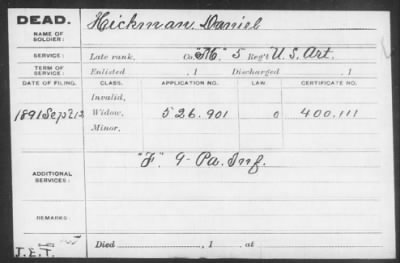 DEAD.
NAME OF SOLDIER: Hickman, Daniel
SERVICE: Late rank, Co. "M" 5 Reg't U.S. Art.
TERM OF SERVICE: Enlisted , 1 Discharged , 1
DATE OF FILING. CLASS. APPLICATION NO. LAW. CERTIFICATE NO.
Invalid,
1891 Sept 12 Widow, 526.901 0 400.111
Minor,
ADDITIONAL SERVICES: "F" 9 - Pa. Inf.
REMARKS:
J.E.T. Died , 1 . at